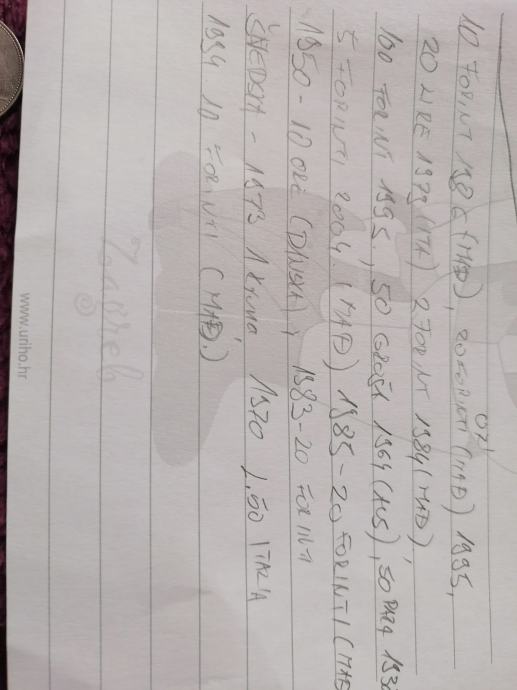 10 FORINT 1986 (MAĐ), 20 FORINTI (MAĐ) 1995,
20 1979 (ITA) 2 FORINT 1984 (MAĐ)
100 FORINT 1995, 50 GROŠA 1964 (AUS), 50 PARA
5 FORINTI 2004. (MAĐ) 1985 - 20 FORINTI (MAĐ
1950 - 10 ORE (DANSKA), 1983 - 20 FORINTI
ŠVEDSKA - 1973 1 KRUNA, 1970 50 ITALIJA
1994 10 FORINTI (MAĐ.)
Zagreb
www.uriho.hr